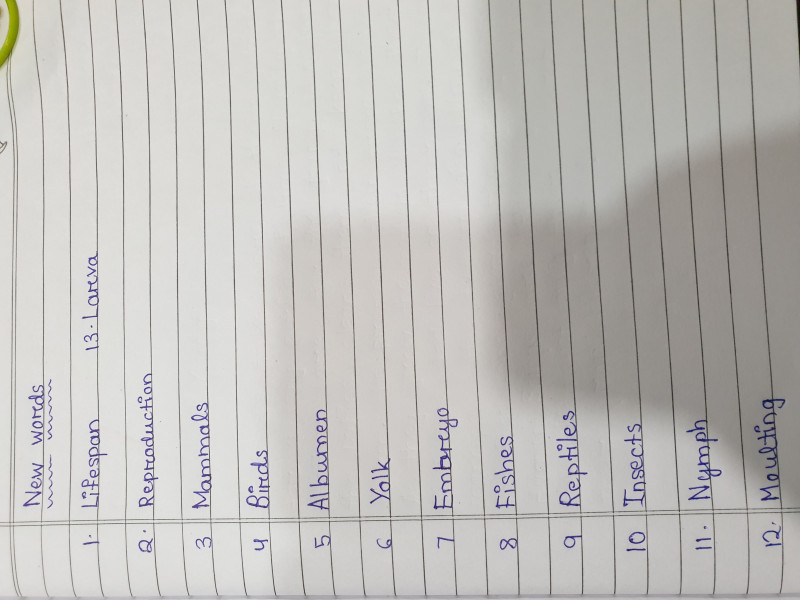 New words
1. Lifespan 13. Larva
2. Reproduction
3 Mammals
4 Birds
5 Albumen
6 Yolk
7 Embryo
8 Fishes
9 Reptiles
10 Insects
11. Nymph
12. Moulting